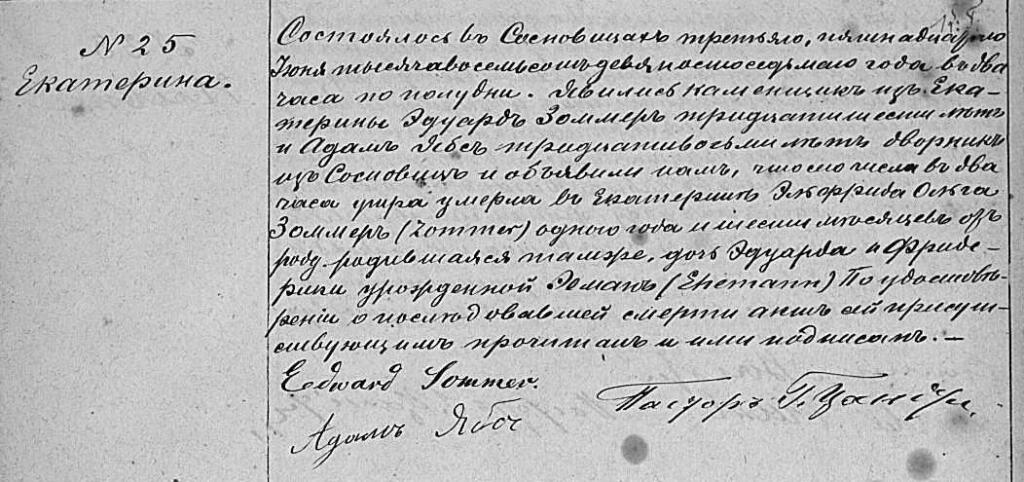 N 25
Екатерина.
Состоялось въ Сосновицахъ третьяго, пятнадцатаго
Іюня тысяча восемьсотъ девяносто седьмаго года въ два
часа по полудни. Явились каменщикъ изъ Ека-
терины Эдуардъ Зоммеръ тридцати шести лѣтъ
и Адамъ Ябсъ тридцати восьми лѣтъ дворникъ
изъ Сосновицъ и объявили намъ, что сего числа въ два
часа утра умерла въ Екатеринѣ Эльфрида Ольга
Зоммеръ (Zommer) одного года и шести мѣсяцевъ отъ
роду родившаяся тамже, дочь Эдуарда и Фриде-
рики урожденной Эеманъ (Ehemann) По удостовѣ-
реніи о послѣдовавшей смерти актъ сей присут-
ствующимъ прочитанъ и ими подписанъ. —
Edward Sommer.
Адамъ Ябс
Пасторъ Г.